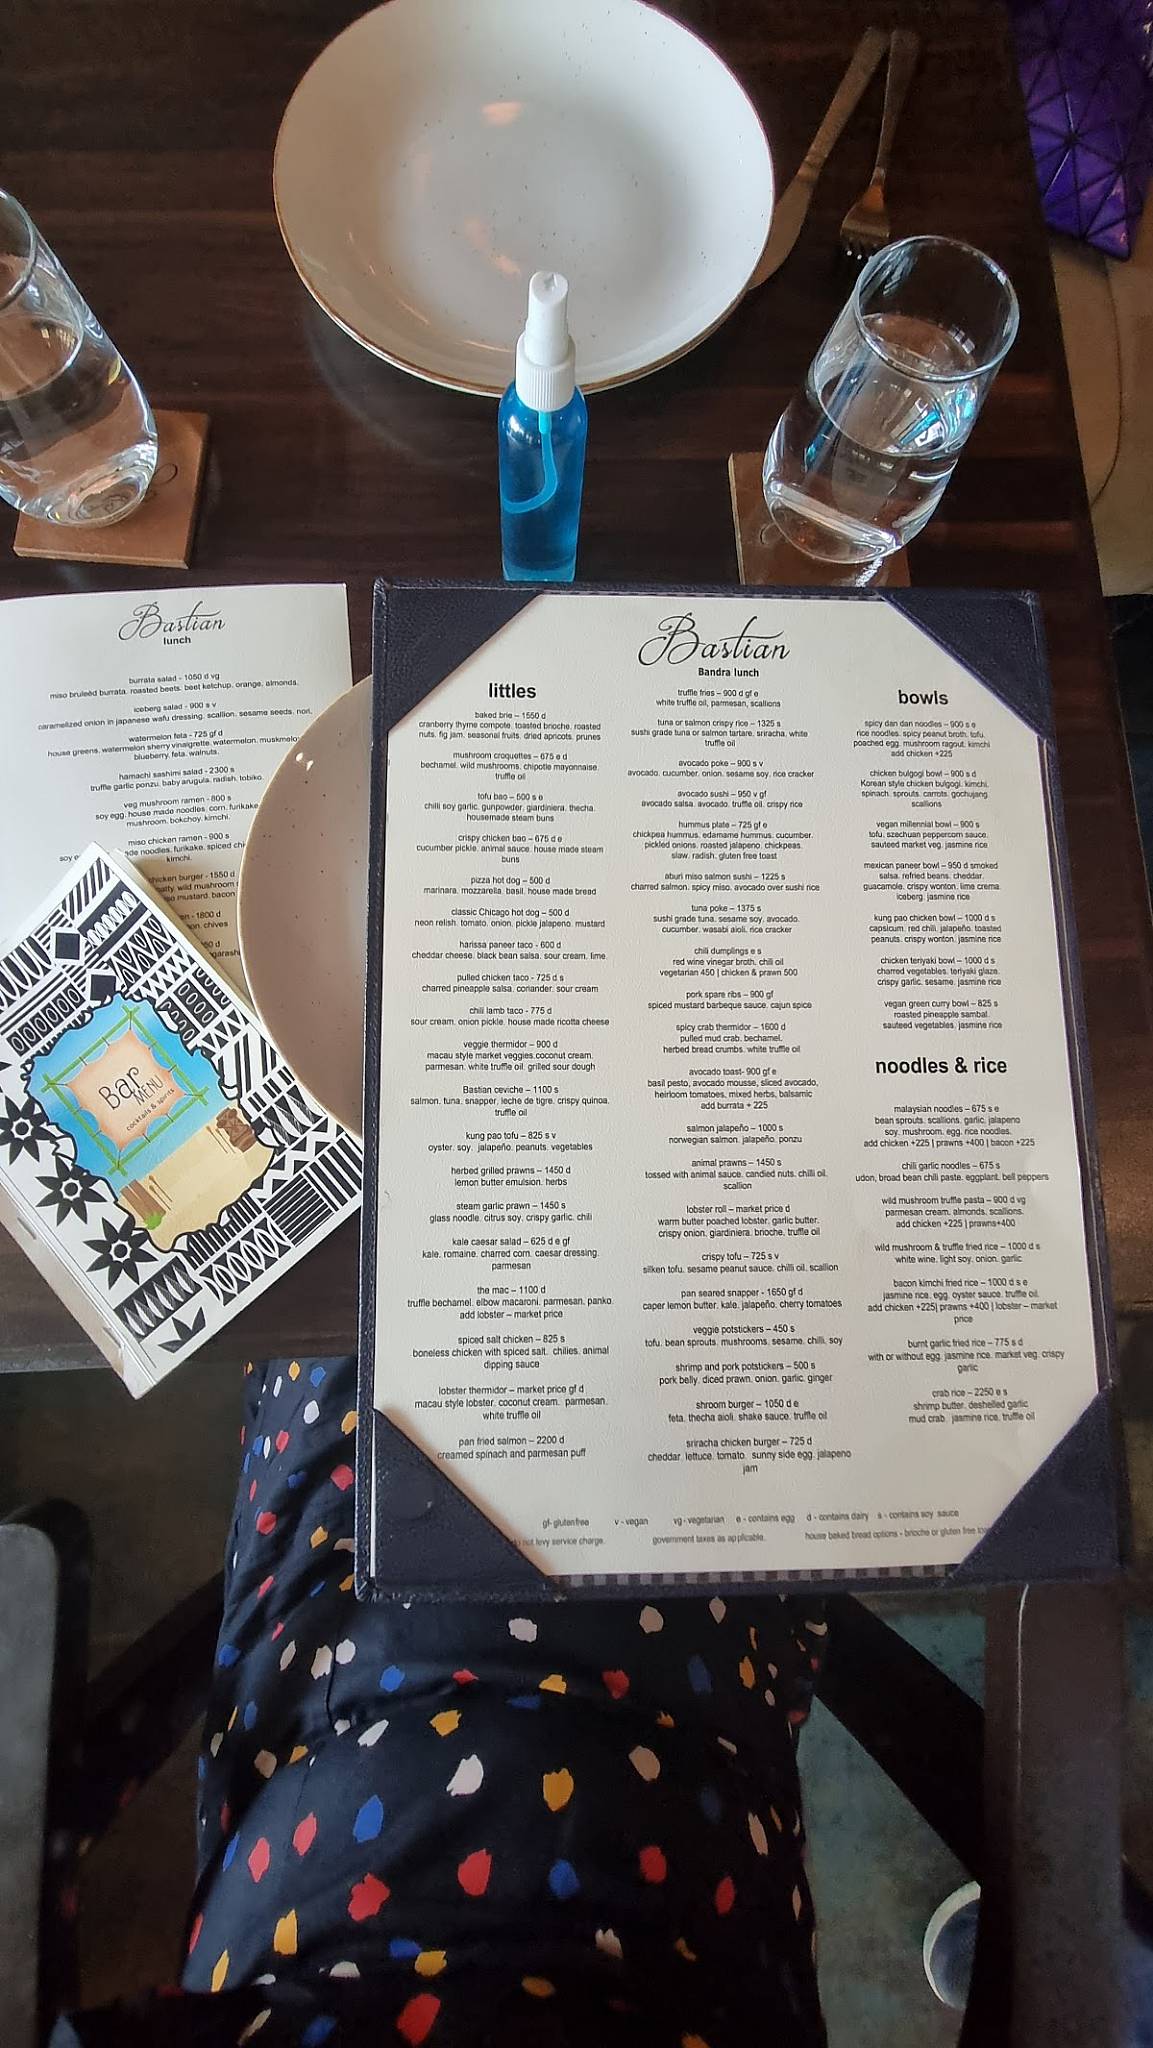 Bastian
lunch
burrata salad - 1050 d vg
miso bruleéd burrata, roasted beets, beet ketchup, orange, almonds.
iceberg salad - 900 s v
caramelized onion in japanese wafu dressing, scallion, sesame seeds, nori,
watermelon feta - 725 gf d
house greens, watermelon sherry vinaigrette, watermelon, muskmelon
blueberry, feta, walnuts.
hamachi sashimi salad - 2300 s
truffle garlic ponzu, baby arugula, radish, tobiko.
veg mushroom ramen - 800 s
soy egg, house made noodles, corn, furikake
mushroom, bokchoy, kimchi.
miso chicken ramen - 900 s
soy e
de noodles, furikake, spiced chi
kimchi.
chicken burger - 1550 d
atty, wild mushroom
so mustard, bacon
en - 1800 d
on, chives
50 d
garashi
Bar
MENU
cocktails & spirits
Bastian
Bandra lunch
littles
baked brie – 1550 d
cranberry thyme compote, toasted brioche, roasted
nuts, fig jam, seasonal fruits, dried apricots, prunes
mushroom croquettes – 675 e d
bechamel, wild mushrooms, chipotle mayonnaise,
truffle oil
tofu bao – 500 s e
chilli soy garlic, gunpowder, giardiniera, thecha,
housemade steam buns
crispy chicken bao – 675 d e
cucumber pickle, animal sauce, house made steam
buns
pizza hot dog – 500 d
marinara, mozzarella, basil, house made bread
classic Chicago hot dog – 500 d
neon relish, tomato, onion, pickle jalapeno, mustard
harissa paneer taco - 600 d
cheddar cheese, black bean salsa, sour cream, lime.
pulled chicken taco - 725 d s
charred pineapple salsa, coriander, sour cream
chili lamb taco - 775 d
sour cream, onion pickle, house made ricotta cheese
veggie thermidor – 900 d
macau style market veggies coconut cream,
parmesan, white truffle oil, grilled sour dough
Bastian ceviche – 1100 s
salmon, tuna, snapper, leche de tigre, crispy quinoa,
truffle oil
kung pao tofu – 825 s v
oyster, soy, jalapeño, peanuts, vegetables
herbed grilled prawns – 1450 d
lemon butter emulsion, herbs
steam garlic prawn – 1450 s
glass noodle, citrus soy, crispy garlic, chili
kale caesar salad – 625 d e gf
kale, romaine, charred corn, caesar dressing,
parmesan
the mac – 1100 d
truffle bechamel, elbow macaroni, parmesan, panko,
add lobster – market price
spiced salt chicken – 825 s
boneless chicken with spiced salt, chilies, animal
dipping sauce
lobster thermidor – market price gf d
macau style lobster, coconut cream, parmesan,
white truffle oil
pan fried salmon – 2200 d
creamed spinach and parmesan puff
truffle fries – 900 d gf e
white truffle oil, parmesan, scallions
tuna or salmon crispy rice – 1325 s
sushi grade tuna or salmon tartare, sriracha, white
truffle oil
avocado poke – 900 s v
avocado, cucumber, onion, sesame soy, rice cracker
avocado sushi – 950 v gf
avocado salsa, avocado, truffle oil, crispy rice
hummus plate – 725 gf e
chickpea hummus, edamame hummus, cucumber,
pickled onions, roasted jalapeno, chickpeas,
slaw, radish, gluten free toast
aburi miso salmon sushi – 1225 s
charred salmon, spicy miso, avocado over sushi rice
tuna poke – 1375 s
sushi grade tuna, sesame soy, avocado,
cucumber, wasabi aioli, rice cracker
chili dumplings e s
red wine vinegar broth, chili oil
vegetarian 450 | chicken & prawn 500
pork spare ribs – 900 gf
spiced mustard barbeque sauce, cajun spice
spicy crab thermidor – 1600 d
pulled mud crab, bechamel,
herbed bread crumbs, white truffle oil
avocado toast- 900 gf e
basil pesto, avocado mousse, sliced avocado,
heirloom tomatoes, mixed herbs, balsamic
add burrata + 225
salmon jalapeño – 1000 s
norwegian salmon, jalapeño, ponzu
animal prawns – 1450 s
tossed with animal sauce, candied nuts, chilli oil,
scallion
lobster roll – market price d
warm butter poached lobster, garlic butter,
crispy onion, giardiniera, brioche, truffle oil
crispy tofu – 725 s v
silken tofu, sesame peanut sauce, chilli oil, scallion
pan seared snapper - 1650 gf d
caper lemon butter, kale, jalapeño, cherry tomatoes
veggie potstickers – 450 s
tofu, bean sprouts, mushrooms, sesame, chilli, soy
shrimp and pork potstickers – 500 s
pork belly, diced prawn, onion, garlic, ginger
shroom burger – 1050 d e
feta, thecha aioli, shake sauce, truffle oil
sriracha chicken burger – 725 d
cheddar, lettuce, tomato, sunny side egg, jalapeno
jam
bowls
spicy dan dan noodles – 900 s e
rice noodles, spicy peanut broth, tofu,
poached egg, mushroom ragout, kimchi
add chicken +225
chicken bulgogi bowl – 900 s d
Korean style chicken bulgogi, kimchi,
spinach, sprouts, carrots, gochujang,
scallions
vegan millennial bowl – 900 s
tofu, szechuan peppercorn sauce,
sauteed market veg, jasmine rice
mexican paneer bowl – 950 d smoked
salsa, refried beans, cheddar,
guacamole, crispy wonton, lime crema,
iceberg, jasmine rice
kung pao chicken bowl – 1000 d s
capsicum, red chili, jalapeño, toasted
peanuts, crispy wonton, jasmine rice
chicken teriyaki bowl – 1000 s
charred vegetables, teriyaki glaze,
crispy garlic, sesame, jasmine rice
vegan green curry bowl – 825 s
roasted pineapple sambal,
sauteed vegetables, jasmine rice
noodles & rice
malaysian noodles – 675 s e
bean sprouts, scallions, garlic, jalapeno
soy, mushroom, egg, rice noodles,
add chicken +225 | prawns +400 | bacon +225
chili garlic noodles – 675 s
udon, broad bean chili paste, eggplant, bell peppers
wild mushroom truffle pasta – 900 d vg
parmesan cream, almonds, scallions,
add chicken +225 | prawns+400
wild mushroom & truffle fried rice – 1000 d s
white wine, light soy, onion, garlic
bacon kimchi fried rice – 1000 d s e
jasmine rice, egg, oyster sauce, truffle oil,
add chicken +225| prawns +400 | lobster – market
price
burnt garlic fried rice – 775 s d
with or without egg, jasmine rice, market veg, crispy
garlic
crab rice – 2250 e s
shrimp butter, deshelled garlic
mud crab, jasmine rice, truffle oil
gf- gluten free v - vegan vg - vegetarian e - contains egg d - contains dairy s - contains soy sauce
not levy service charge. government taxes as applicable. house baked bread options - brioche or gluten free